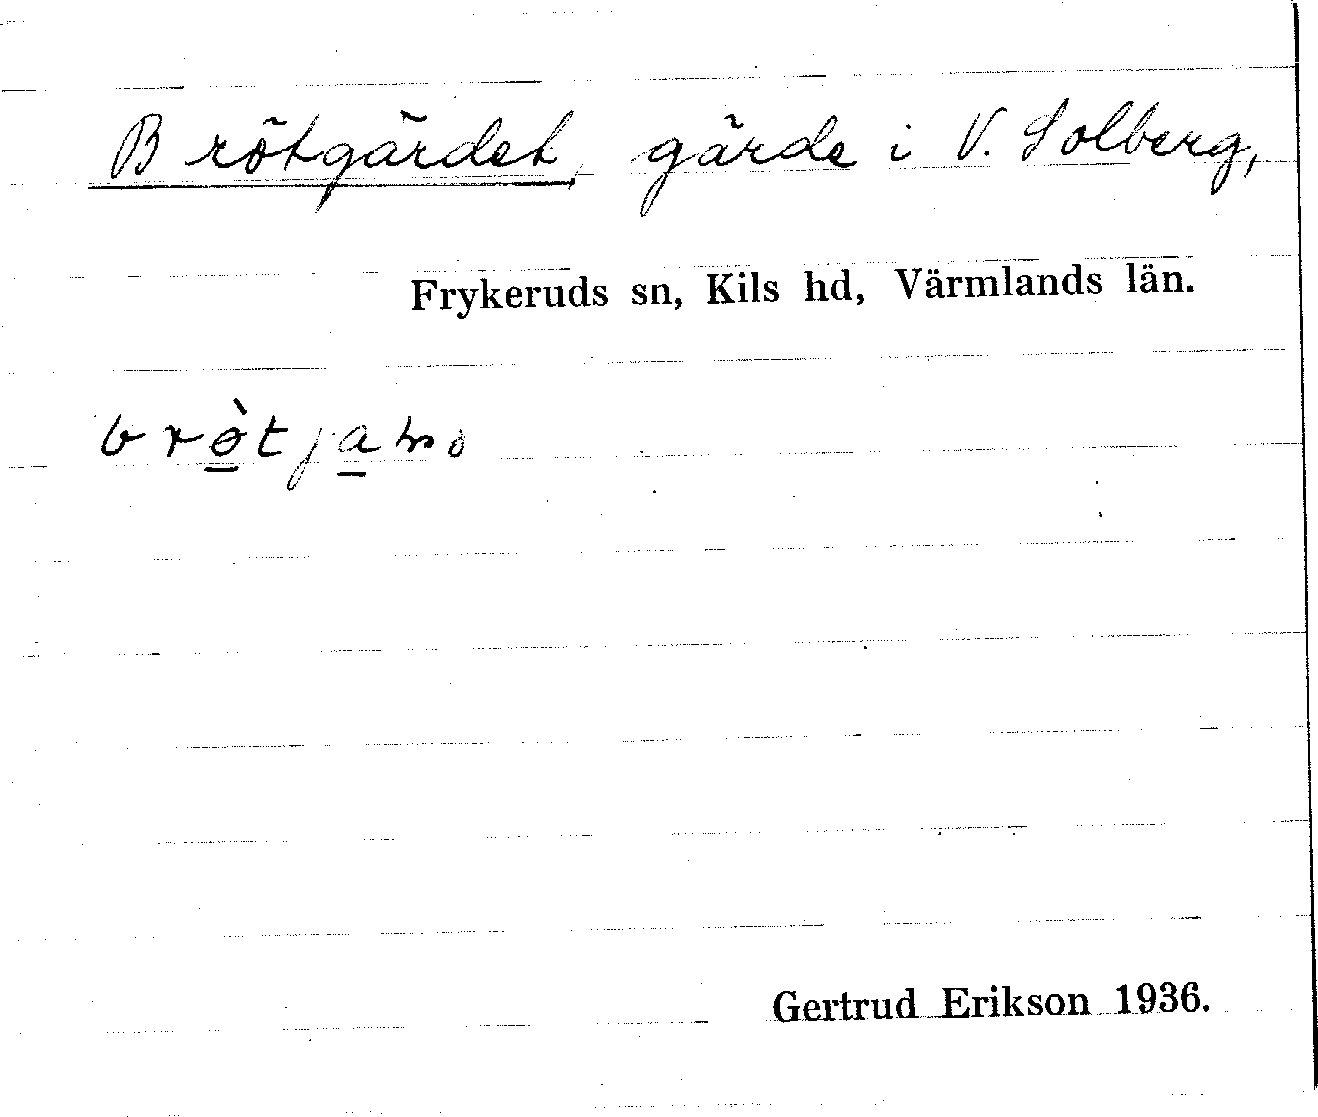 Brötgärdet, gärde i V. Solberg,
Frykeruds sn, Kils hd, Värmlands län.
Gertrud Erikson 1936.